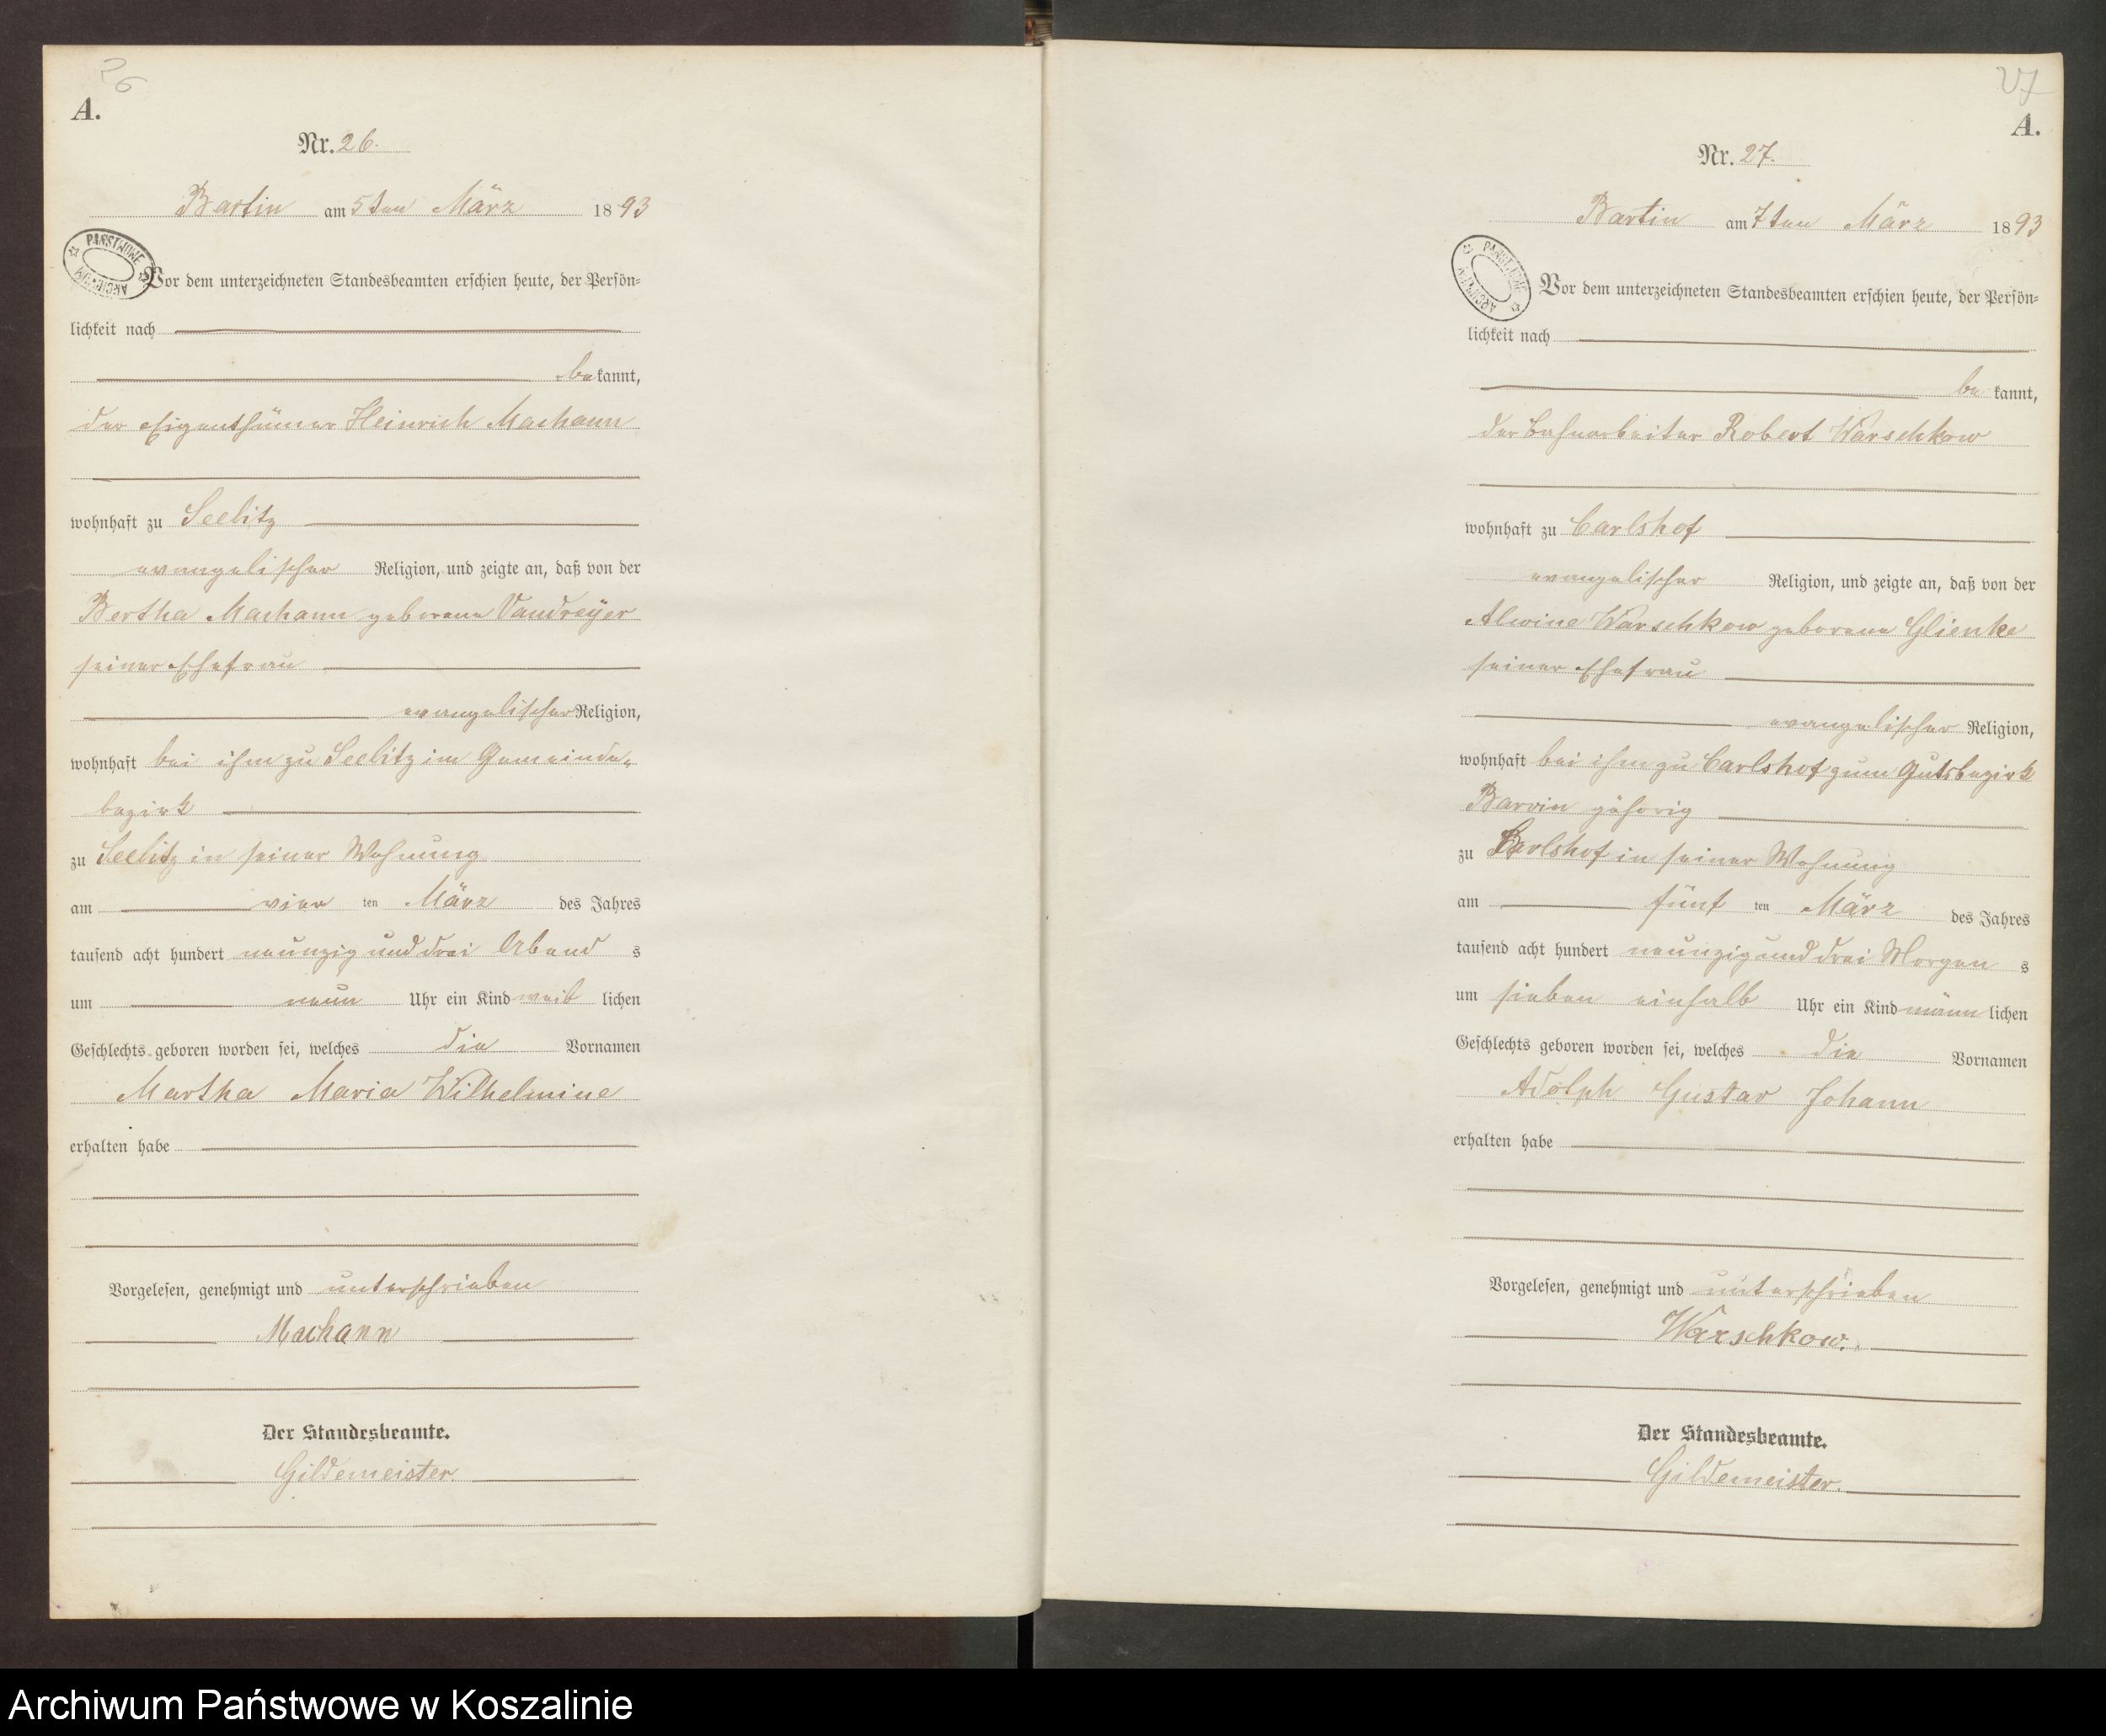 26
A.
Nr. 26.
Bartin am 5ten März 1893
PAŃSTWOWE ARCHIWUM
Vor dem unterzeichneten Standesbeamten erschien heute, der Persön=
lichkeit nach
bekannt,
der Eigenthümer Heinrich Machann
wohnhaft zu Seelitz
evangelischer Religion, und zeigte an, daß von der
Bertha Machann geborene Vandreÿer
seiner Ehefrau
evangelischer Religion,
wohnhaft bei ihm zu Seelitz im Gemeinde„
bezirk
zu Seelitz in seiner Wohnung
am vier ten März des Jahres
tausend acht hundert neunzig und drei Abend s
um neun Uhr ein Kind weib lichen
Geschlechts geboren worden sei, welches die Vornamen
Martha Maria Wilhelmine
erhalten habe
Vorgelesen, genehmigt und unterschrieben
Machann
Der Standesbeamte.
Gildemeister.
27
A.
Nr. 27.
Bartin am 7ten März 1893
PAŃSTWOWE ARCHIWUM
Vor dem unterzeichneten Standesbeamten erschien heute, der Persön=
lichkeit nach
be kannt,
der Bahnarbeiter Robert Warschkow
wohnhaft zu Carlshof
evangelischer Religion, und zeigte an, daß von der
Alwine Warschkow geborene Glienke
seiner Ehefrau
evangelischer Religion,
wohnhaft bei ihm zu Carlshof zum Gutsbezirk
Barvin gehörig
zu Carlshof in seiner Wohnung
am fünf ten März des Jahres
tausend acht hundert neunzig und drei Morgen s
um sieben einhalb Uhr ein Kind männ lichen
Geschlechts geboren worden sei, welches die Vornamen
Adolph Gustav Johann
erhalten habe
Vorgelesen, genehmigt und unterschrieben
Warschkow.
Der Standesbeamte.
Gildemeister.
Archiwum Państwowe w Koszalinie